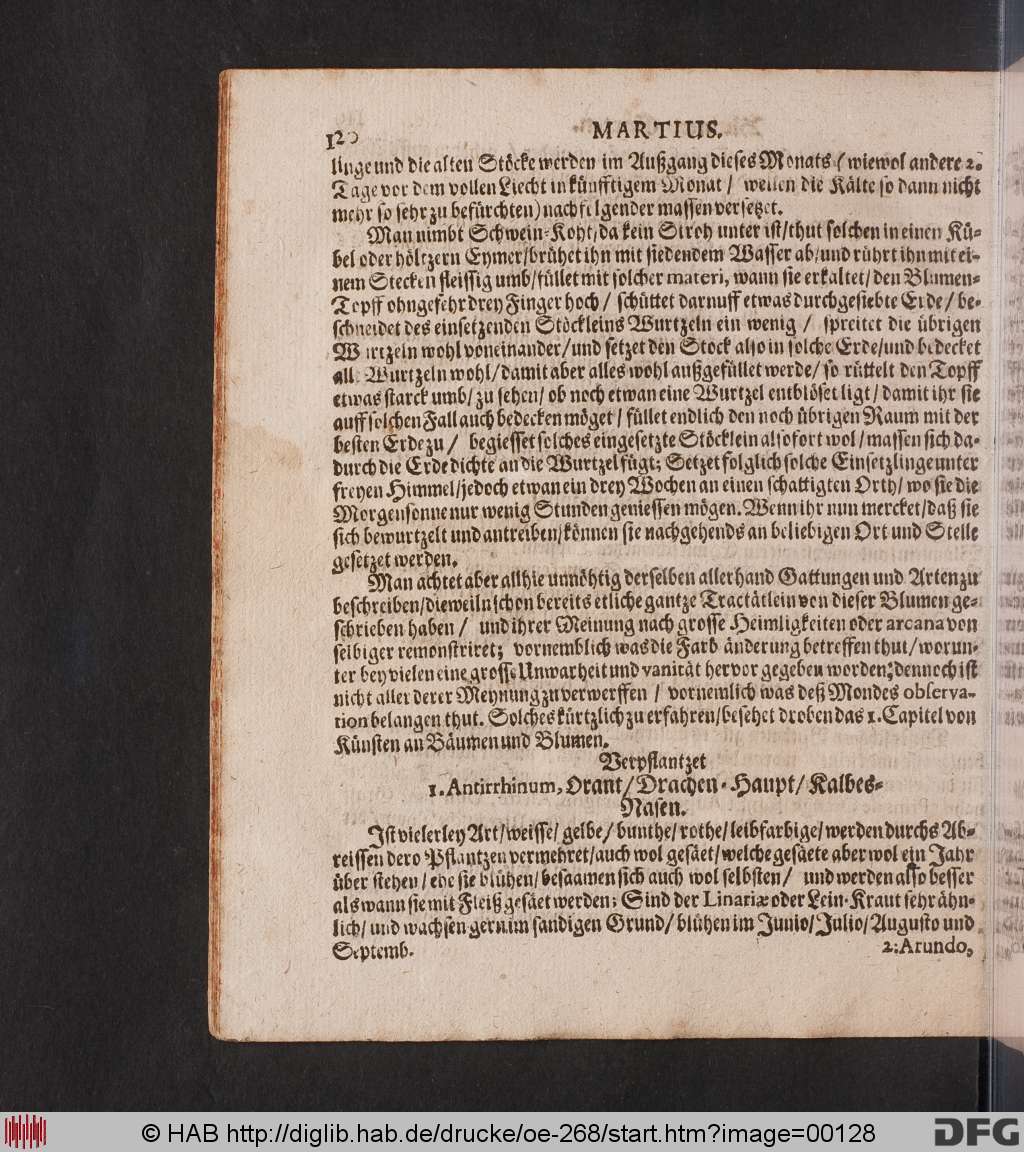 120 MARTIUS.
linge und die alten Stöcke werden im Außgang dieses Monats (wiewol andere 2.
Tage vor dem vollen Liecht in künfftigem Monat / weilen die Kälte so dann nicht
mehr so sehr zu befürchten) nachfolgender massen versetzet.
Man nimbt Schwein-Koht, da kein Stroh unter ist / thut solchen in einen Kü-
bel oder höltzern Eymer / brühet ihn mit siedendem Wasser ab / und rührt ihn mit ei-
nem Stecken fleissig umb / füllet mit solcher materi, wann sie erkaltet / den Blumen-
Topff ohngefehr drey Finger hoch / schüttet darauff etwas durchgesiebte Erde / be-
schneidet des einsetzenden Stöckleins Wurtzeln ein wenig / spreitet die übrigen
Wurtzeln wohl voneinander / und setzet den Stock also in solche Erde / und bedecket
alle Wurtzeln wohl / damit aber alles wohl außgefüllet werde / so rüttelt den Topff
etwas starck umb / zu sehen / ob noch etwan eine Wurtzel entblöset ligt / damit ihr sie
auff solchen Fall auch bedecken möget / füllet endlich den noch übrigen Raum mit der
besten Erde zu / begiesset solches eingesetzte Stöcklein alsofort wol / massen sich da-
durch die Erde dichte an die Wurtzel fügt; Setzet folglich solche Einsetzlinge unter
freyen Himmel / jedoch etwan ein drey Wochen an einen schattigten Orth / wo sie die
Morgensonne nur wenig Stunden geniessen mögen. Wenn ihr nun mercket / daß sie
sich bewurtzelt und antreiben / können sie nachgehends an beliebigen Ort und Stelle
gesetzet werden.
Man achtet aber allhie unnöhtig derselben allerhand Gattungen und Arten zu
beschreiben / dieweiln schon bereits etliche gantze Tractätlein von dieser Blumen ge-
schrieben haben / und ihrer Meinung nach grosse Heimligkeiten oder arcana von
selbiger remonstriret; vornemblich was die Farb änderung betreffen thut / worun-
ter bey vielen eine grosse Unwarheit und vanität hervor gegeben worden; dennoch ist
nicht aller derer Meynung zu verwerffen / vornemlich was deß Mondes observa-
tion belangen thut. Solches kürtzlich zu erfahren / besehet droben das 1. Capitel von
Künsten an Bäumen und Blumen.
Verpflantzet
1. Antirrhinum, Orant / Drachen-Haupt / Kalbes-
Nasen.
Ist vielerley Art / weisse / gelbe / bunthe / rothe / leibfarbige / werden durchs Ab-
reissen dero Pflantzen vermehret / auch wol gesäet / welche gesäete aber wol ein Jahr
über stehen / ehe sie blühen / besaamen sich auch wol selbsten / und werden also besser
als wann sie mit Fleiß gesäet werden; Sind der Linariæ oder Lein-Kraut sehr ähn-
lich / und wachsen gern im sandigen Grund / blühen im Junio / Julio / Augusto und
Septemb. 2: Arundo,
© HAB http://diglib.hab.de/drucke/oe-268/start.htm?image=00128 DFG